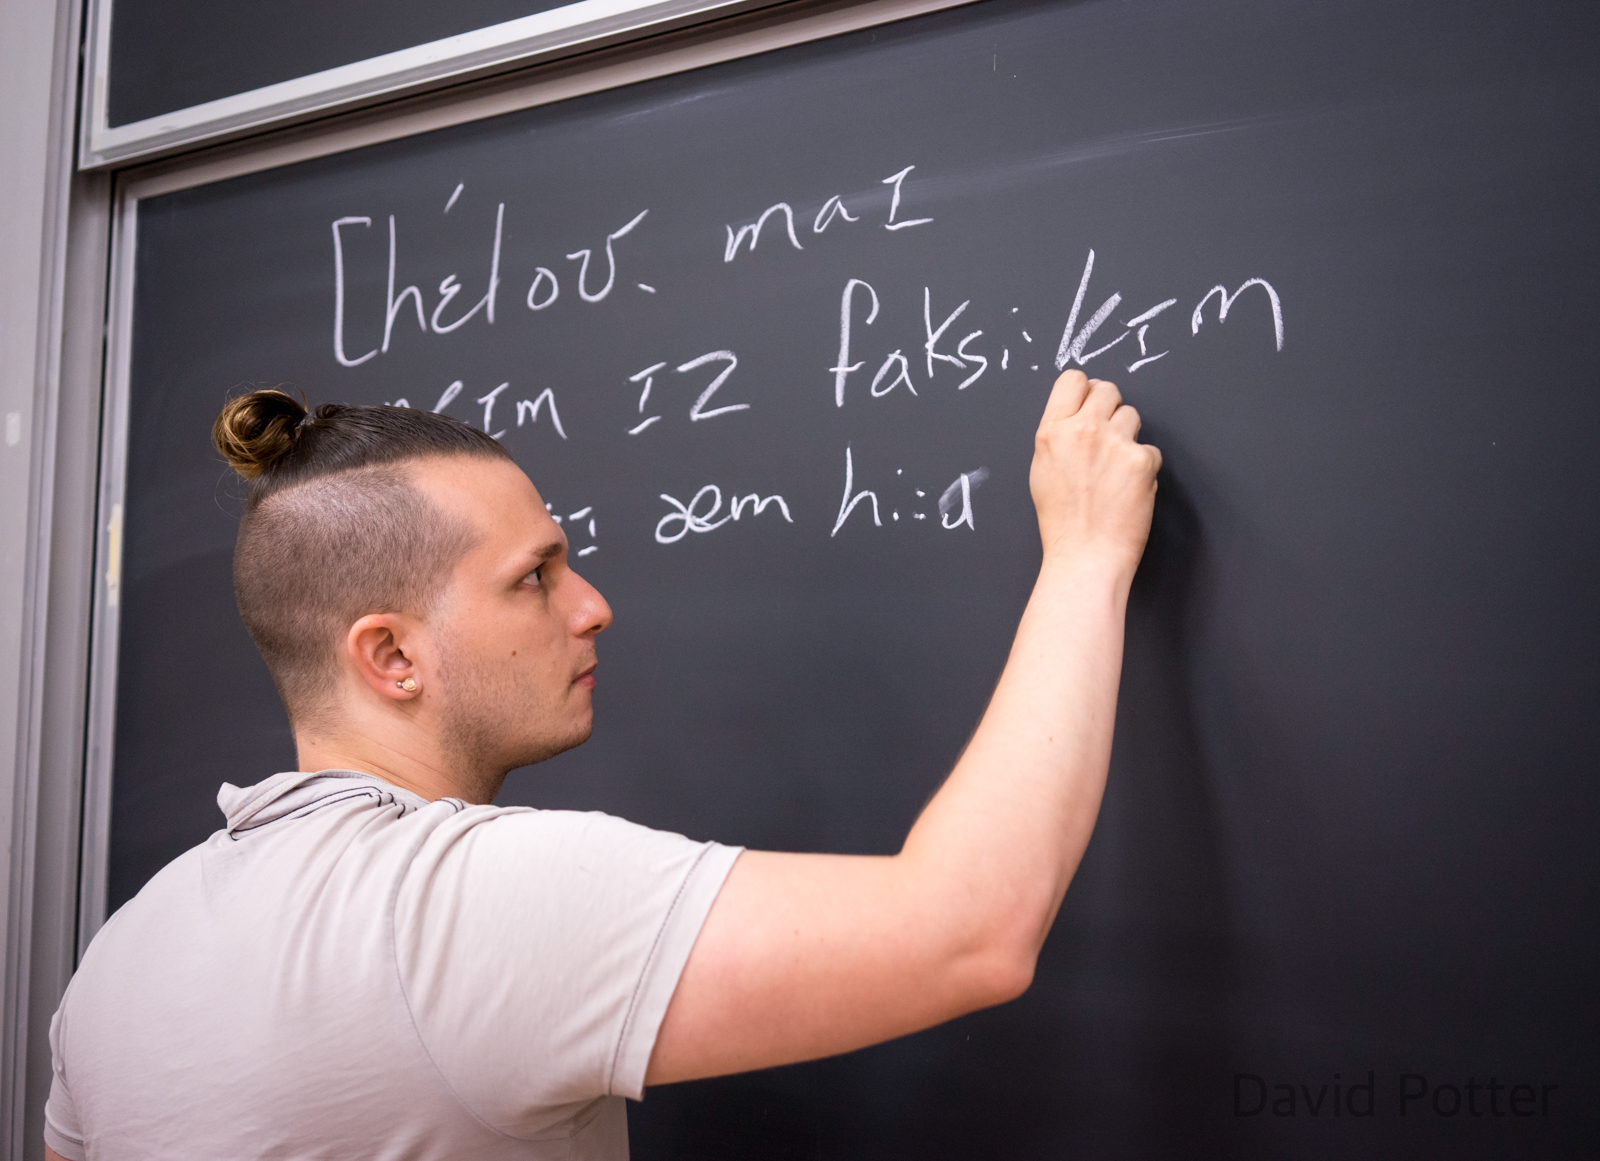 [hɛ́loʊ. maɪ
neɪm ɪz faksi:kɪm
aɪ æm hi:ɹ
David Potter